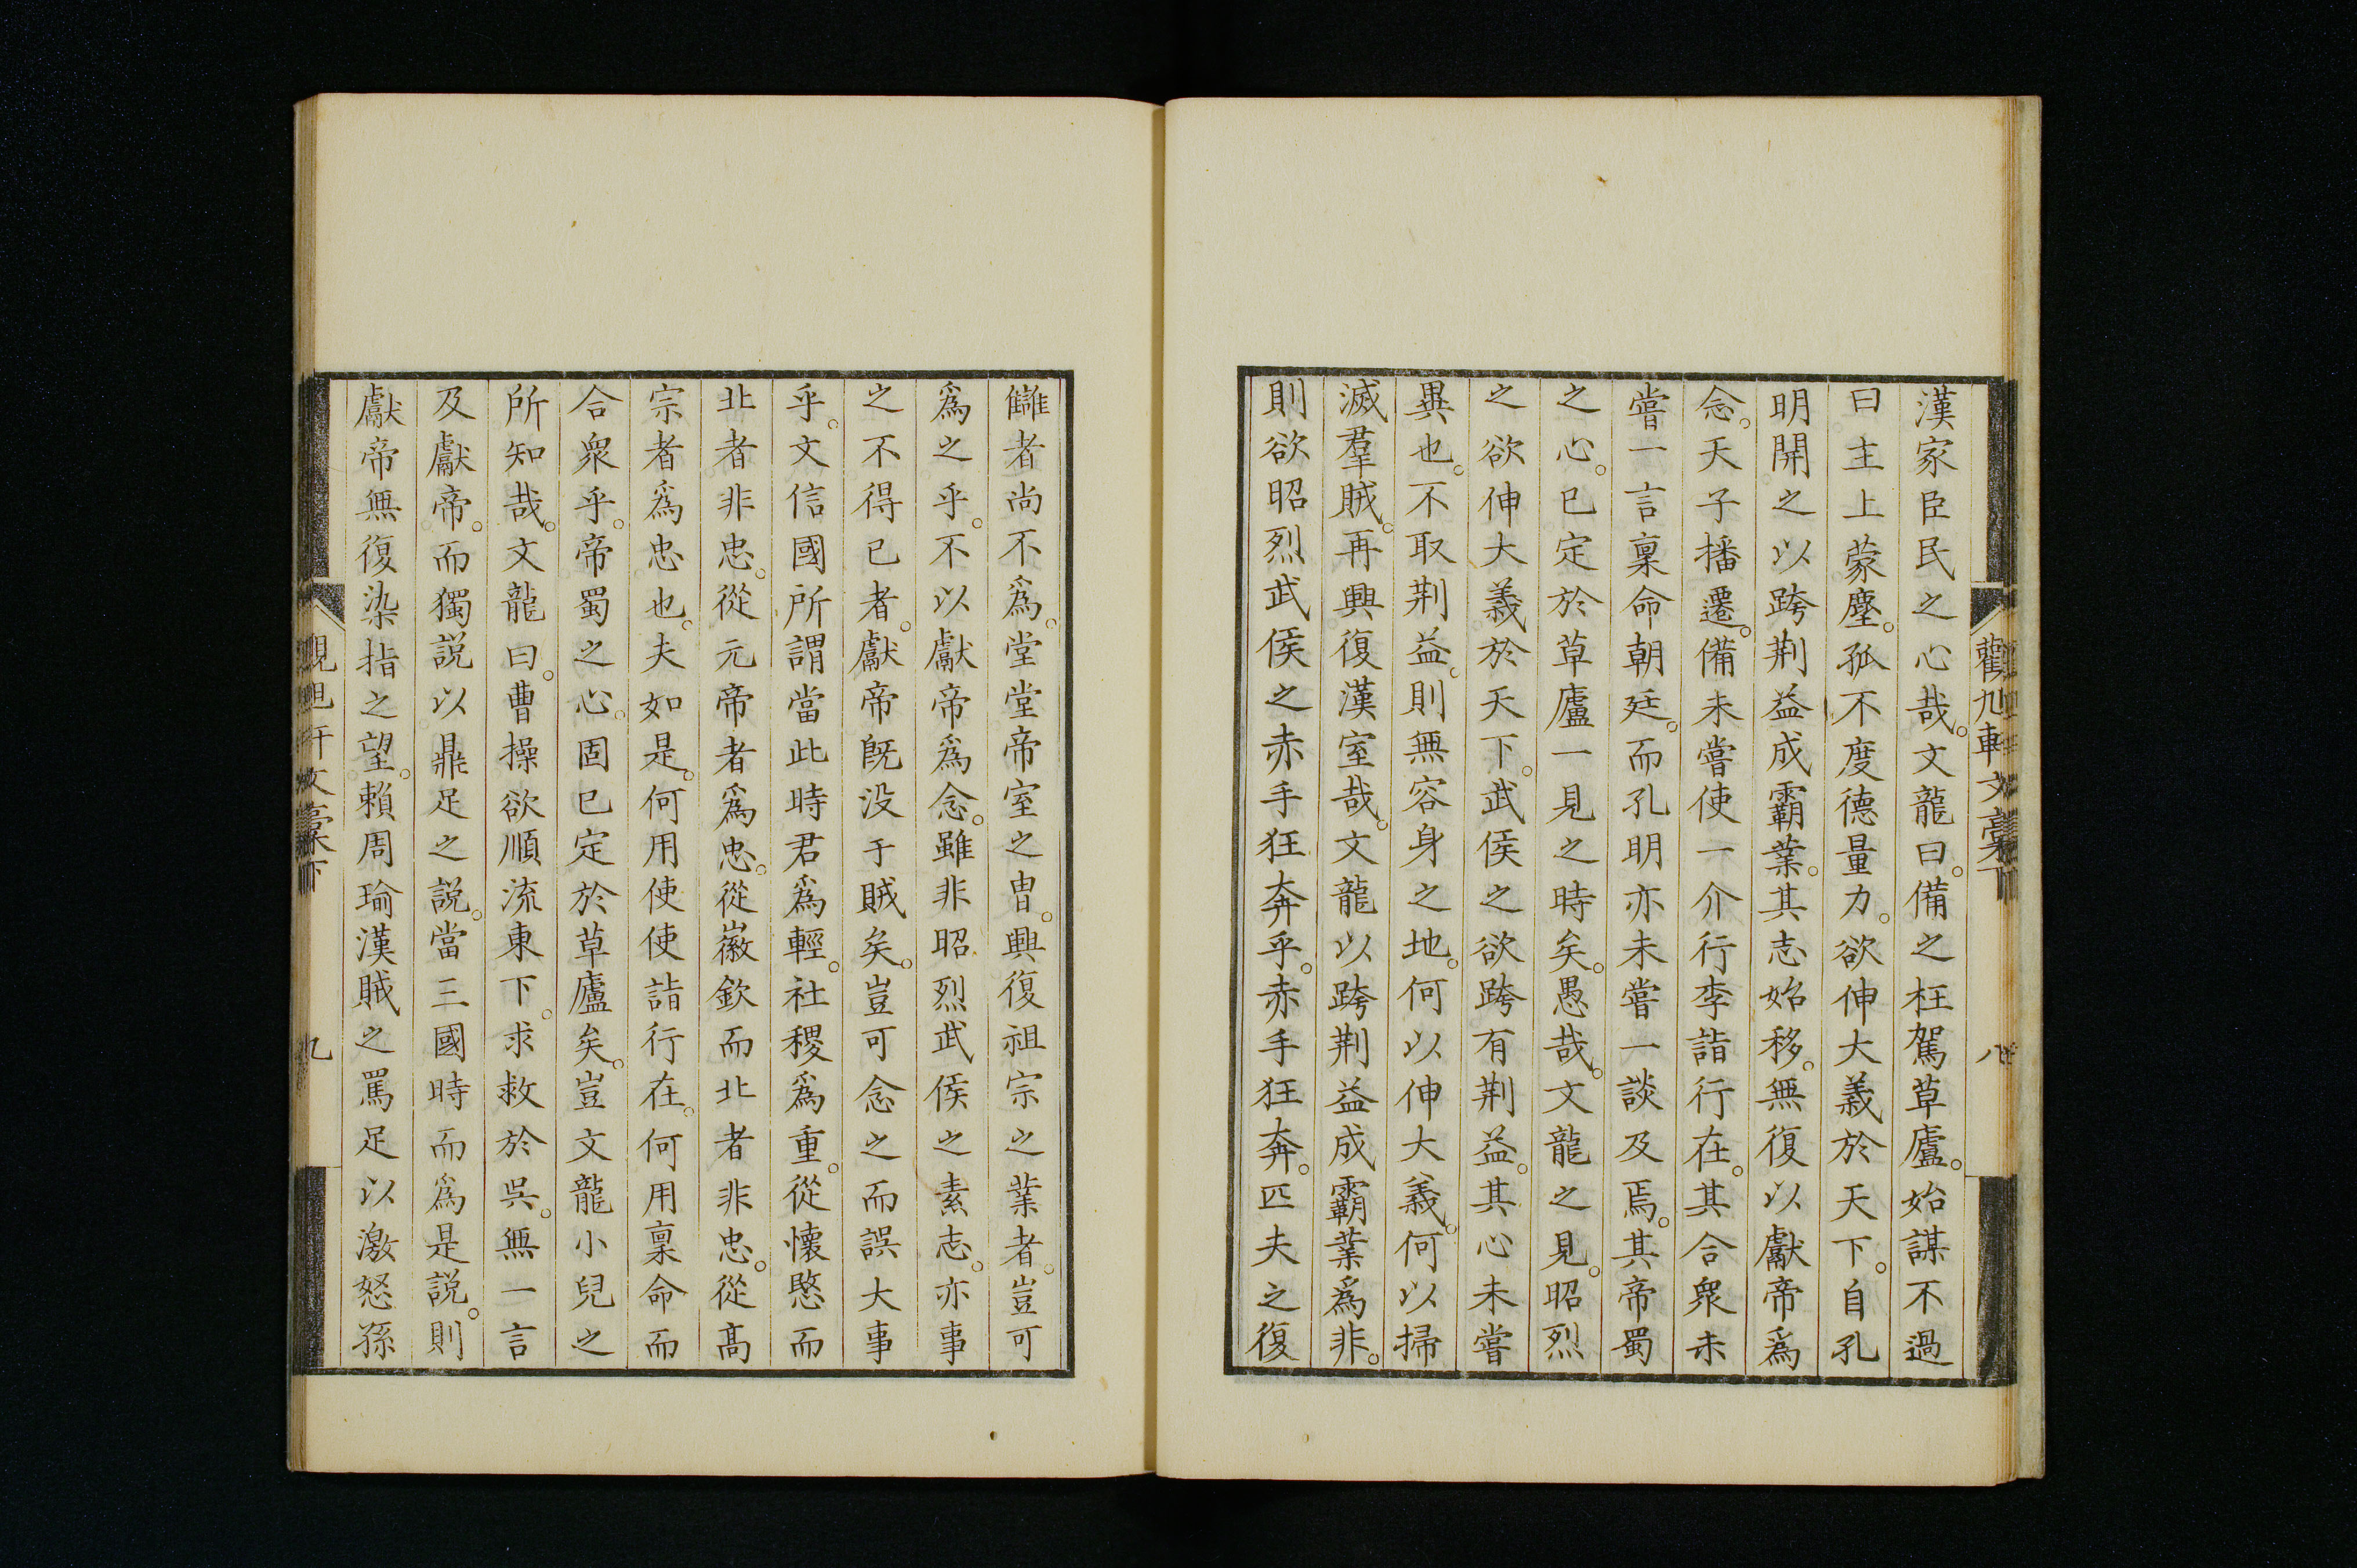 觀旭軒文稾下
八
漢家臣民之心哉。文龍曰。備之枉駕草廬。始謀不過
曰主上蒙塵。孤不度德量力。欲伸大義於天下。自孔
明開之以跨荆益成霸業。其志始移。無復以獻帝爲
念。天子播遷。備未嘗使一介行李詣行在。其合衆未
嘗一言稟命朝廷。而孔明亦未嘗一談及焉。其帝蜀
之心。已定於草廬一見之時矣。愚哉。文龍之見。昭烈
之欲伸大義於天下。武侯之欲跨有荆益。其心未嘗
異也。不取荆益。則無容身之地。何以伸大義。何以掃
滅羣賊。再興復漢室哉。文龍以跨荆益成霸業爲非。
則欲昭烈武侯之赤手狂奔乎。赤手狂奔。匹夫之復
讎者尚不爲。堂堂帝室之胄。興復祖宗之業者。豈可
爲之乎。不以獻帝爲念。雖非昭烈武侯之素志。亦事
之不得已者。獻帝既没于賊矣。豈可念之而誤大事
乎。文信國所謂當此時君爲輕。社稷爲重。從懷愍而
北者非忠。從元帝者爲忠。從徽欽而北者非忠。從高
宗者爲忠也。夫如是。何用使使詣行在。何用稟命而
合衆乎。帝蜀之心。固已定於草廬矣。豈文龍小兒之
所知哉。文龍曰。曹操欲順流東下。求救於吳。無一言
及獻帝。而獨説以鼎足之説。當三國時而爲是説。則
獻帝無復染指之望。賴周瑜漢賊之罵足以激怒孫
觀旭軒文稾下
九